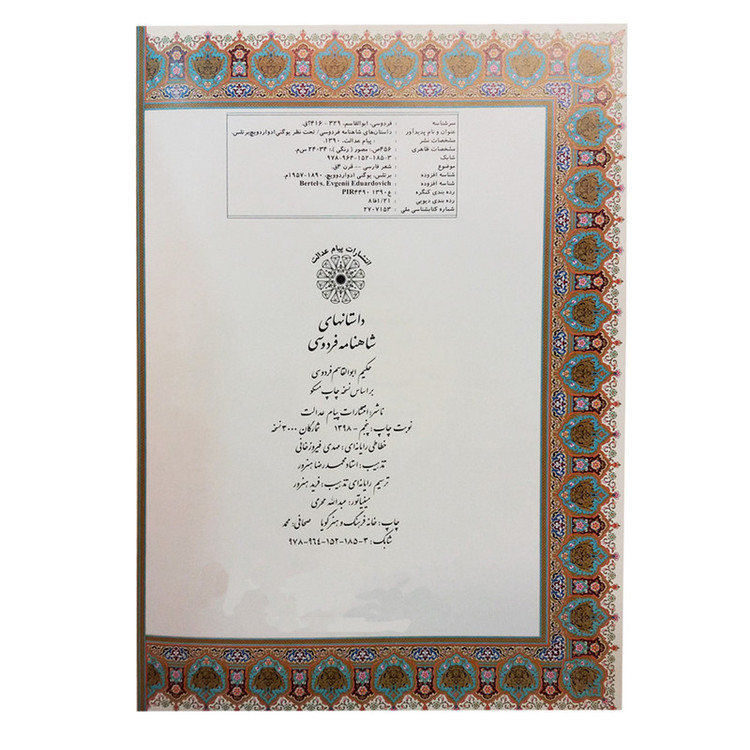 سرشناسه : فردوسی، ابوالقاسم، ۳۲۹ - ۴۱۶؟ق.
عنوان و نام پدیدآور : داستان‌های شاهنامه فردوسی/ تحت نظر یوگنی ادواردویچ برتلس.
مشخصات نشر : پیام عدالت، ۱۳۹۰.
مشخصات ظاهری : ۴۵۶ص.: مصور ( رنگی )؛ ۳۴×۲۴ س‌م.
شابک : ۹۷۸-۹۶۴-۱۵۲-۱۸۵-۳
موضوع : شعر فارسی -- قرن ۴ق.
شناسه افزوده : برتلس، یوگنی ادواردوویچ، ۱۸۹۰-۱۹۵۷م.
شناسه افزوده : Bertel,s, Evgenii Eduardovich
رده بندی کنگره : PIR۴۴۹۰ ع۱۳۹۰
رده بندی دیویی : ۸فا۱/۲۱
شماره کتابشناسی ملی : ۲۷۰۷۱۵۳
انتشارات پیام عدالت
داستانهای
شاهنامه فردوسی
حکیم ابوالقاسم فردوسی
بر اساس نسخه چاپ مسکو
ناشر: انتشارات پیام عدالت
نوبت چاپ: پنجم - ۱۳۹۸ شمارگان ۳۰۰۰ نسخه
خطاطی رایانه‌ای: مهدی فیروزخانی
تذهیب: استاد محمدرضا هنرور
ترسیم رایانه‌ای تذهیب: فرید هنرور
مینیاتور: عبدالله محرمی
چاپ: خانه فرهنگ و هنر گویا صحافی: محمد
شابک: ۳-۱۸۵-۱۵۲-۹۶۴-۹۷۸